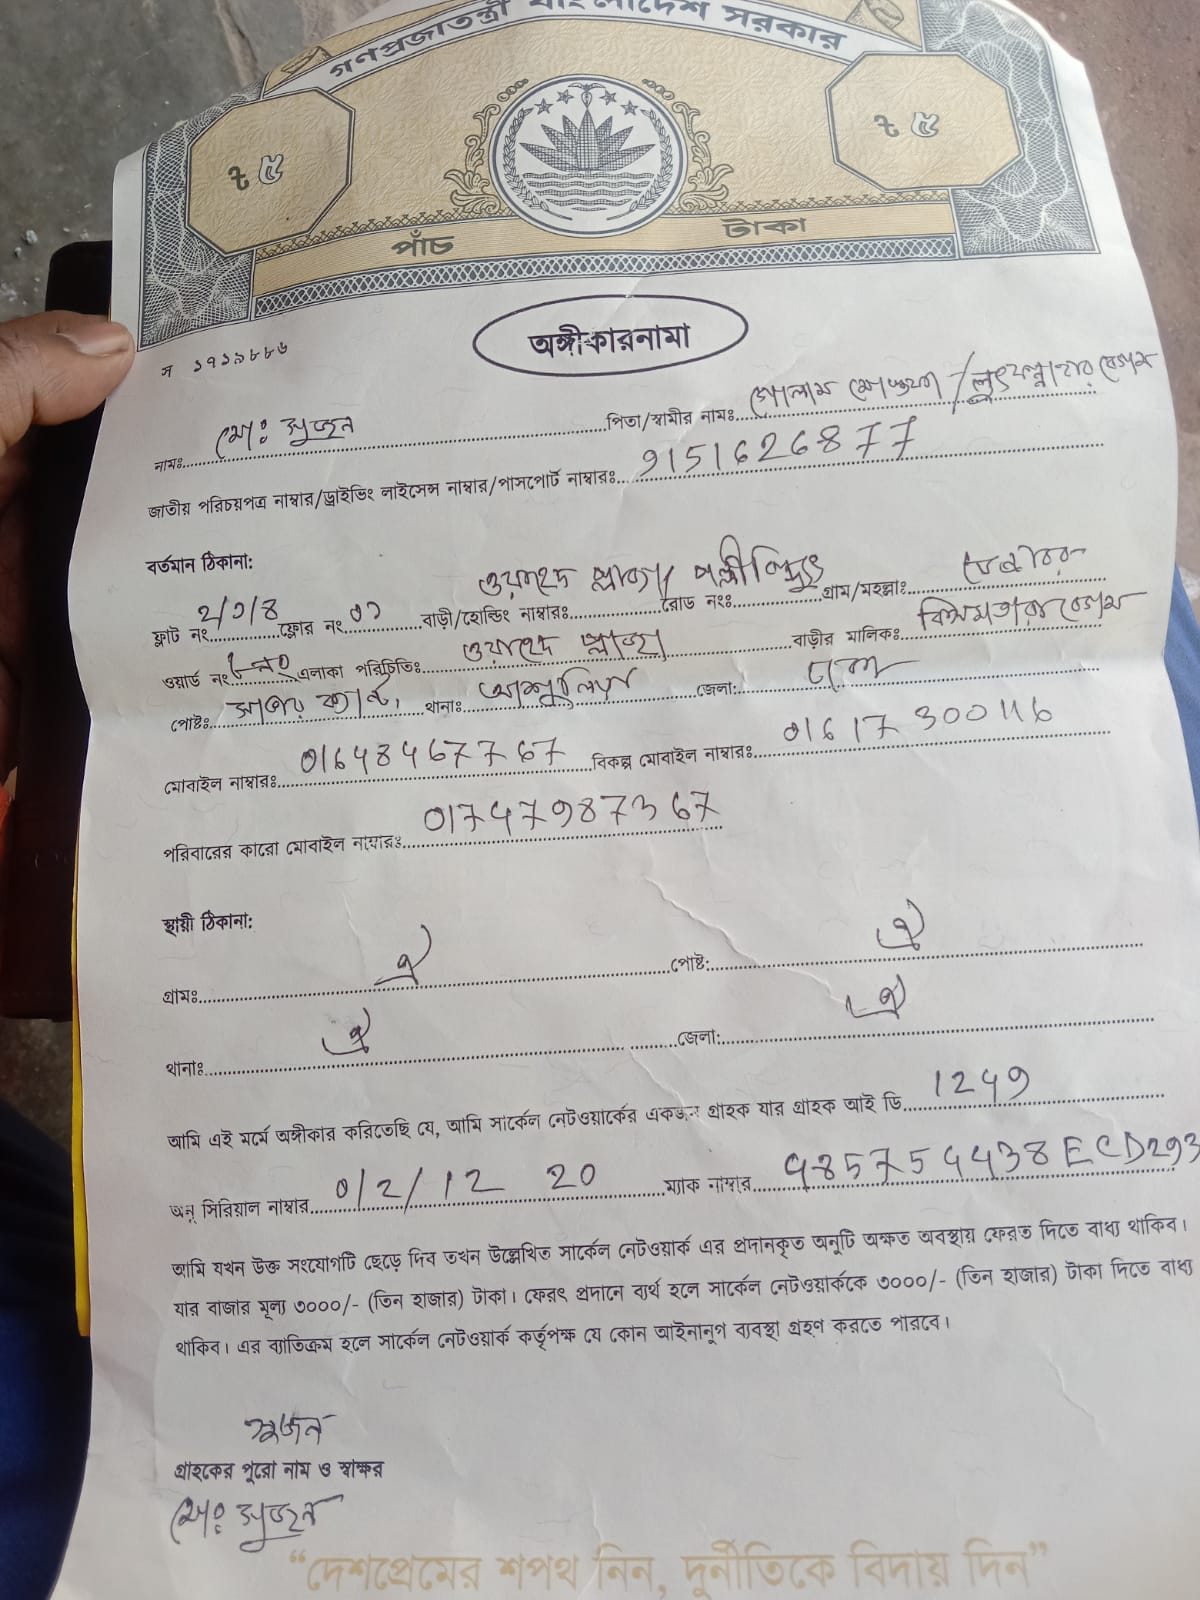 গণপ্রজাতন্ত্রী বাংলাদেশ সরকার
৳ ৫ ৳ ৫
পাঁচ টাকা
অঙ্গীকারনামা
স ১৭১৯৮৮৬
নামঃ মোঃ সুজন পিতা/স্বামীর নামঃ গোলাম মোস্তফা / লুৎফন্নাহার বেগম
জাতীয় পরিচয়পত্র নাম্বার/ড্রাইভিং লাইসেন্স নাম্বার/পাসপোর্ট নাম্বারঃ 9151626877
বর্তমান ঠিকানা:
ফ্লাট নং 2/9/8 ফ্লোর নং ০১ বাড়ী/হোল্ডিং নাম্বারঃ ওয়াহেদ প্লাজা পল্লী বিদ্যুৎ রোড নংঃ গ্রাম/মহল্লাঃ
ওয়ার্ড নং এলাকা পরিচিতিঃ ওয়াহেদ প্লাজা বাড়ীর মালিকঃ বেগম
পোষ্টঃ সাভার ক্যান্ট, থানাঃ আশুলিয়া জেলা: ঢাকা
মোবাইল নাম্বারঃ 01648467767 বিকল্প মোবাইল নাম্বারঃ 01617300116
পরিবারের কারো মোবাইল নাম্বারঃ 01747987367
স্থায়ী ঠিকানা:
গ্রামঃ ঐ পোষ্ট: ঐ
থানাঃ ঐ জেলা: ঐ
আমি এই মর্মে অঙ্গীকার করিতেছি যে, আমি সার্কেল নেটওয়ার্কের একজন গ্রাহক যার গ্রাহক আই ডি 1249
অনু সিরিয়াল নাম্বার 0/2/12 20 ম্যাক নাম্বার 485754438ECD293
আমি যখন উক্ত সংযোগটি ছেড়ে দিব তখন উল্লেখিত সার্কেল নেটওয়ার্ক এর প্রদানকৃত অনুটি অক্ষত অবস্থায় ফেরত দিতে বাধ্য থাকিব।
যার বাজার মূল্য ৩০০০/- (তিন হাজার) টাকা। ফেরৎ প্রদানে ব্যর্থ হলে সার্কেল নেটওয়ার্ককে ৩০০০/- (তিন হাজার) টাকা দিতে বাধ্য
থাকিব। এর ব্যাতিক্রম হলে সার্কেল নেটওয়ার্ক কর্তৃপক্ষ যে কোন আইনানুগ ব্যবস্থা গ্রহণ করতে পারবে।
সুজন
গ্রাহকের পুরো নাম ও স্বাক্ষর
মোঃ সুজন
“দেশপ্রেমের শপথ নিন, দুর্নীতিকে বিদায় দিন”